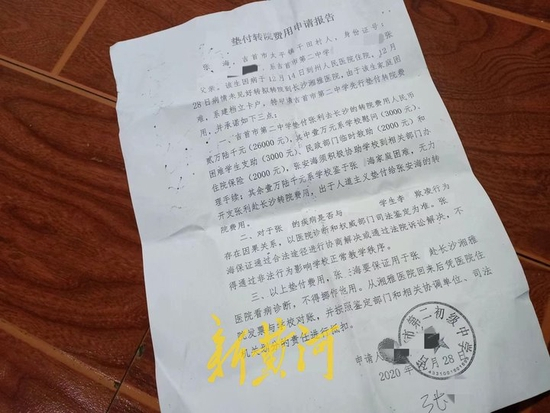 垫付转院费用申请报告
张 海，吉首市太平镇千田村人，身份证号：
，系吉首市第二中学
父亲。该生因病于12月14日到州人民医院住院，12月
28日病情未见好转拟转院到长沙湘雅医院，由于该生家庭困
难，系建档立卡户，特对请吉首市第二中学先行垫付转院费
用，并承诺如下三点：
一、吉首市第二中学垫付张利去长沙的转院费用人民币
贰万陆千元（26000元），其中壹万元系学校慰问（3000元）和
困难学生支助（3000元）、民政部门临时救助（2000元）和
住院保险（2000元），张安海须积极协助学校到相关部门办
理手续；其余壹万陆千元系学校鉴于张 海家庭困难，无力
开支张利赴长沙转院费用，出于人道主义垫付给张安海的转
院费用。
二、对于张 的疾病是否与 学生李 欺凌行为
存在因果关系，以医院诊断和权威部门司法鉴定为准。张
海保证通过合法途径进行协商解决或通过法院诉讼解决，不
得通过非法行为影响学校正常教学秩序。
三、以上垫付费用，张 海要保证用于张 赴长沙湘雅
医院看病诊断，不得挪作他用。从湘雅医院回来后凭医院住
院发票与学校对账，并按照鉴定部门和相关协调单位、司法
机关 责任进行抵扣。
新黄河
市第二初级中学
申请人
2020年 月28
张